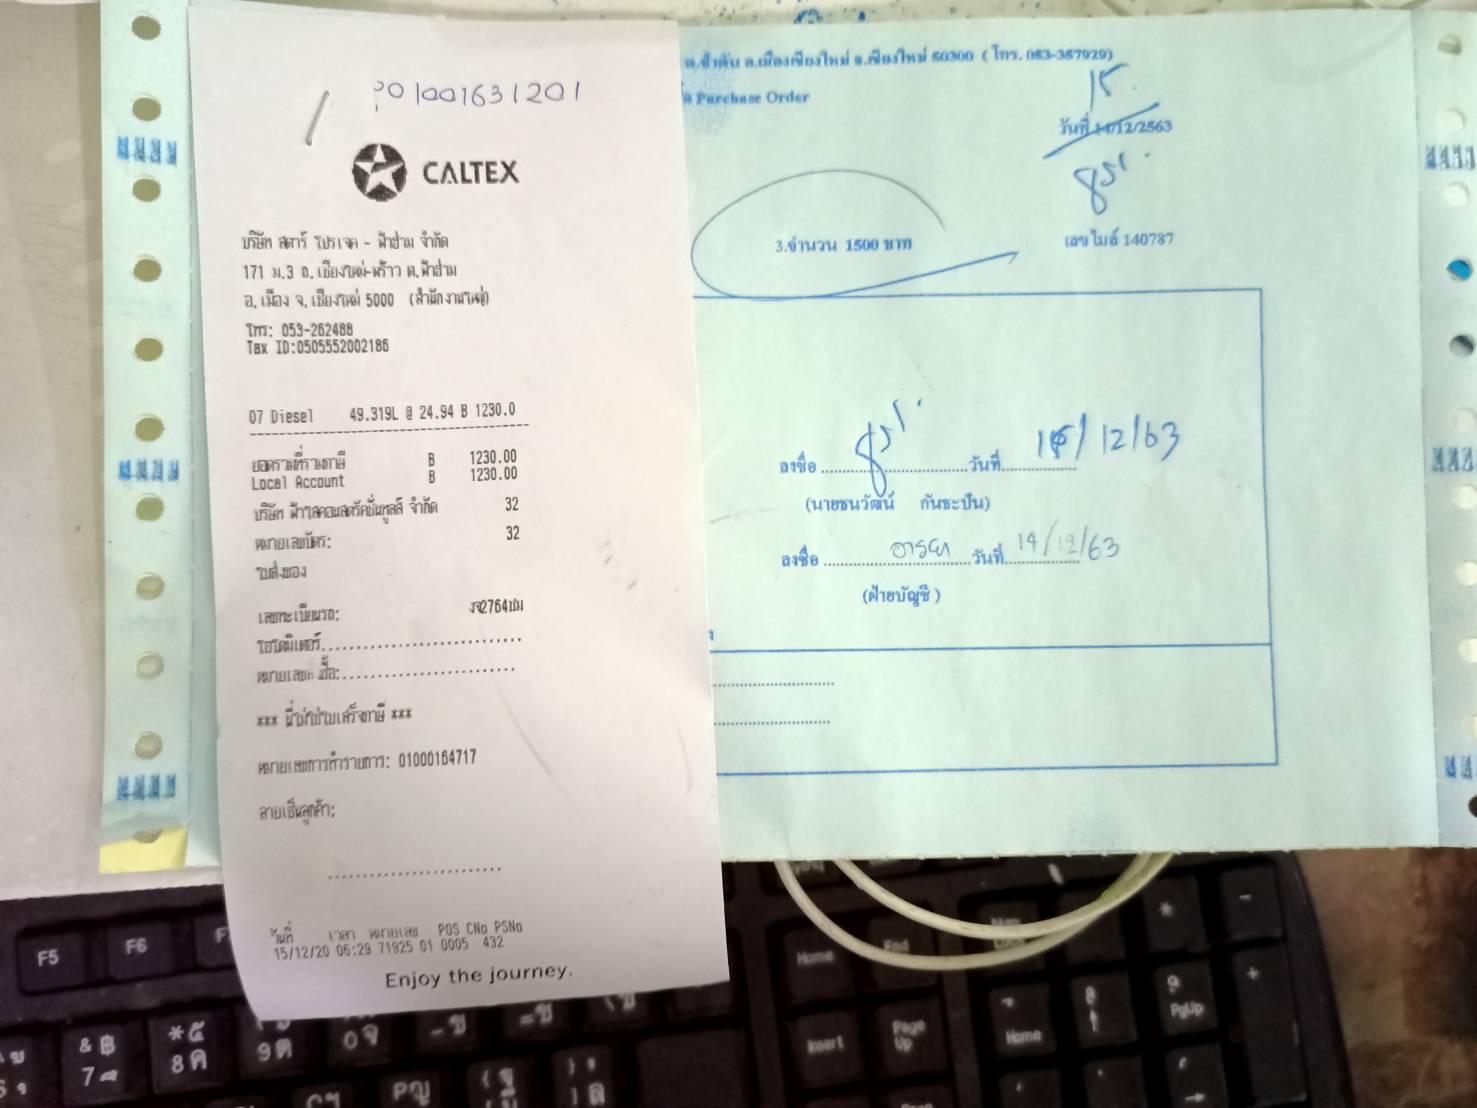 PO1001631201
CALTEX
บริษัท สตาร์ โปรเจค - ฟ้าฮ่าม จำกัด
171 ม.3 ถ.เชียงใหม่-พร้าว ต.ฟ้าฮ่าม
อ.เมือง จ.เชียงใหม่ 5000 (สำนักงานใหญ่)
โทร: 053-262488
Tax ID:0505552002186
07 Diesel 49.319L @ 24.94 B 1230.0
ยอดรวมที่รวมภาษี B 1230.00
Local Account B 1230.00
บริษัท ฟ้าใสคอนสตรัคชั่นทูลส์ จำกัด 32
หมายเลขบัตร: 32
ใบสั่งของ
เลขทะเบียนรถ: 2764
โอโดมิเตอร์
หมายเลขผู้ซื้อ:
*** นี่ไม่ใช่ใบเสร็จภาษี ***
หมายเลขการทำรายการ: 01000164717
ลายเซ็นลูกค้า:
วันที่ เวลา หมายเลข POS CNo PSNo
15/12/20 06:29 71925 01 0005 432
Enjoy the journey.
อ.เมืองเชียงใหม่ จ.เชียงใหม่ 50300 ( โทร. 053-357929)
Purchase Order
15
วันที่ 14/12/2563
3.จำนวน 1500 บาท
เลขไมล์ 140787
ลงชื่อ วันที่ 15/12/63
(นายธนวัฒน์ กันธะปัน)
ลงชื่อ อารยา วันที่ 14/12/63
(ฝ่ายบัญชี )
F5 F6
Home End
Insert Page Up
& ฿ 7
* ๕ 8 ค
9 ต
0 จ
Home
8
9 PgUp
*
-
+